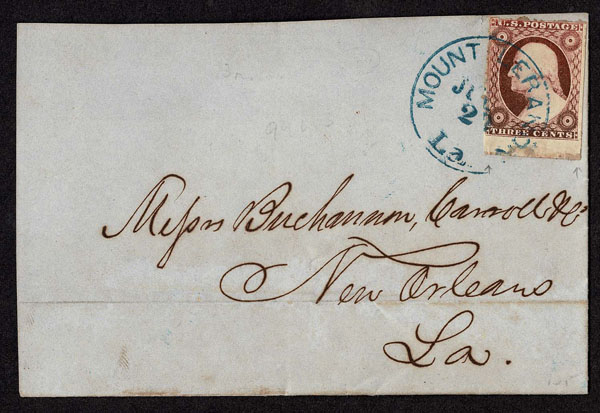 U.S. POSTAGE
THREE CENTS
MOUNT
2
Messrs Buchannon, Carroll & Co
New Orleans
La.